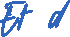 Et d